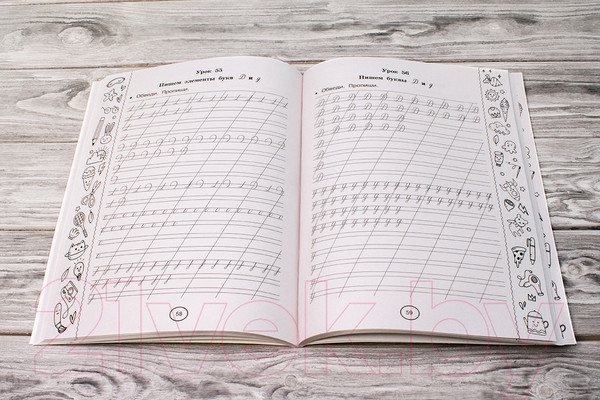 Урок 55
Пишем элементы букв Д и д
• Обведи. Пропиши.
58
Урок 56
Пишем буквы Д и д
• Обведи. Пропиши.
59
21vek.by